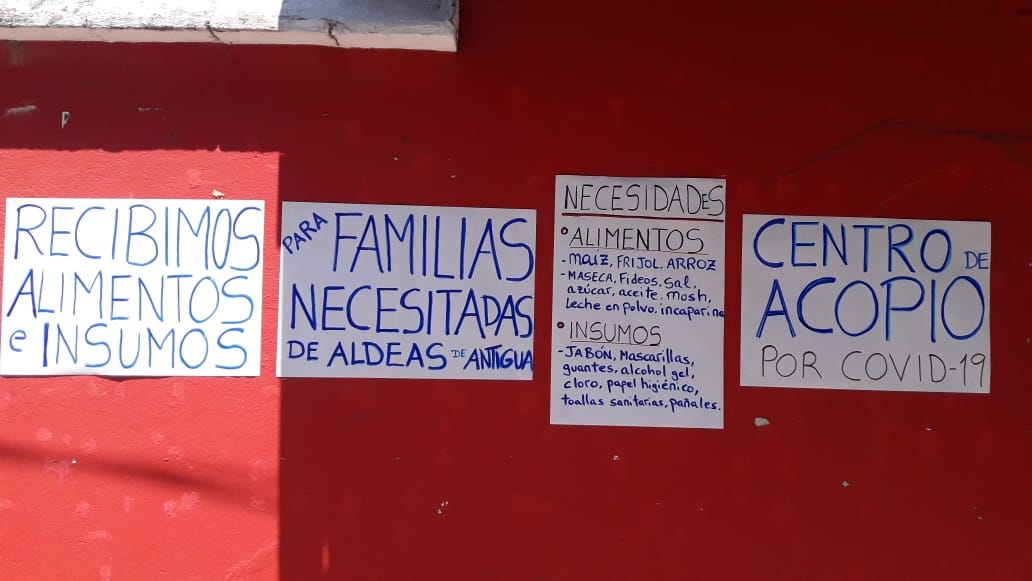 RECIBIMOS
ALIMENTOS
e INSUMOS
PARA FAMILIAS
NECESITADAS
DE ALDEAS DE ANTIGUA
NECESIDADES
ALIMENTOS
- maíz, FRIJOL, ARROZ
- MASECA, Fideos, sal,
azúcar, aceite, mosh,
leche en polvo, incaparina
INSUMOS
- JABÓN, Mascarillas,
guantes, alcohol gel,
cloro, papel higiénico,
toallas sanitarias, pañales.
CENTRO DE
ACOPIO
POR COVID-19